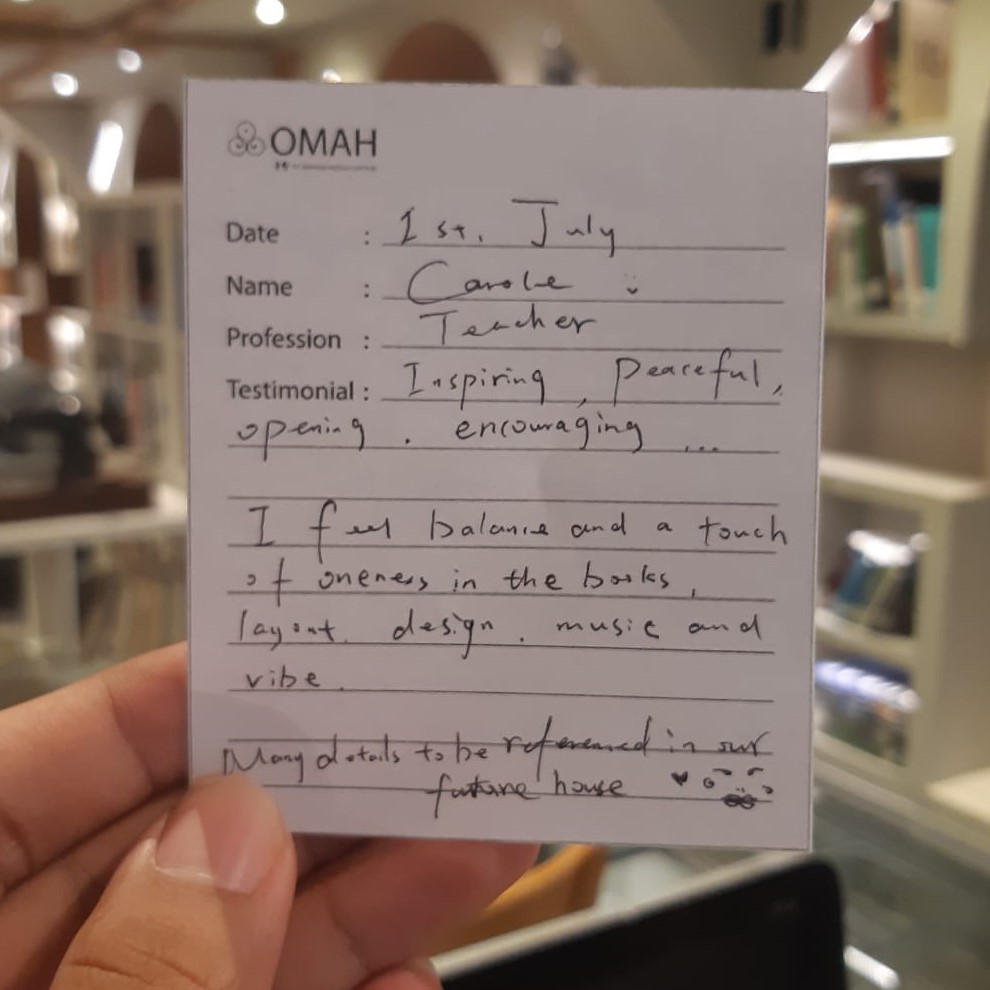 OMAH
Date : 1st. July
Name : Carole
Profession : Teacher
Testimonial : Inspiring, Peaceful,
opening. encouraging ...
I feel balance and a touch
of oneness in the books,
layout. design. music and
vibe.
Many details to be referenced in our
future house